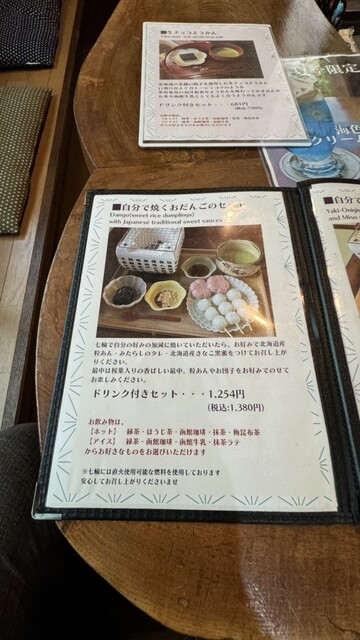 ■生チョコようかん
ドリンク付きセット・・・681円
夏季限定
海色
クリーム
■自分で焼くおだんごのセット
Dango(sweet rice dumplings)
with Japanese traditional sweet sauces
七輪で自分の好みの加減に焼いていただいたら、お好みで北海道産
粒あん・みたらしのタレ・北海道産きなこ黒蜜をつけてお召し上が
りください。
最中は桜葉入りの香ばしい最中、粒あんやお団子をお好みでのせて
お楽しみください。
ドリンク付きセット・・・1,254円
(税込:1,380円)
お飲み物は、
【ホット】 緑茶・ほうじ茶・函館珈琲・抹茶・梅昆布茶
【アイス】 緑茶・函館珈琲・函館牛乳・抹茶ラテ
からお好きなものをお選びいただけます
※七輪には直火使用可能な燃料を使用しております
安心してお召し上がりくださいませ
■自分で
Yaki-Onigi
and Miso